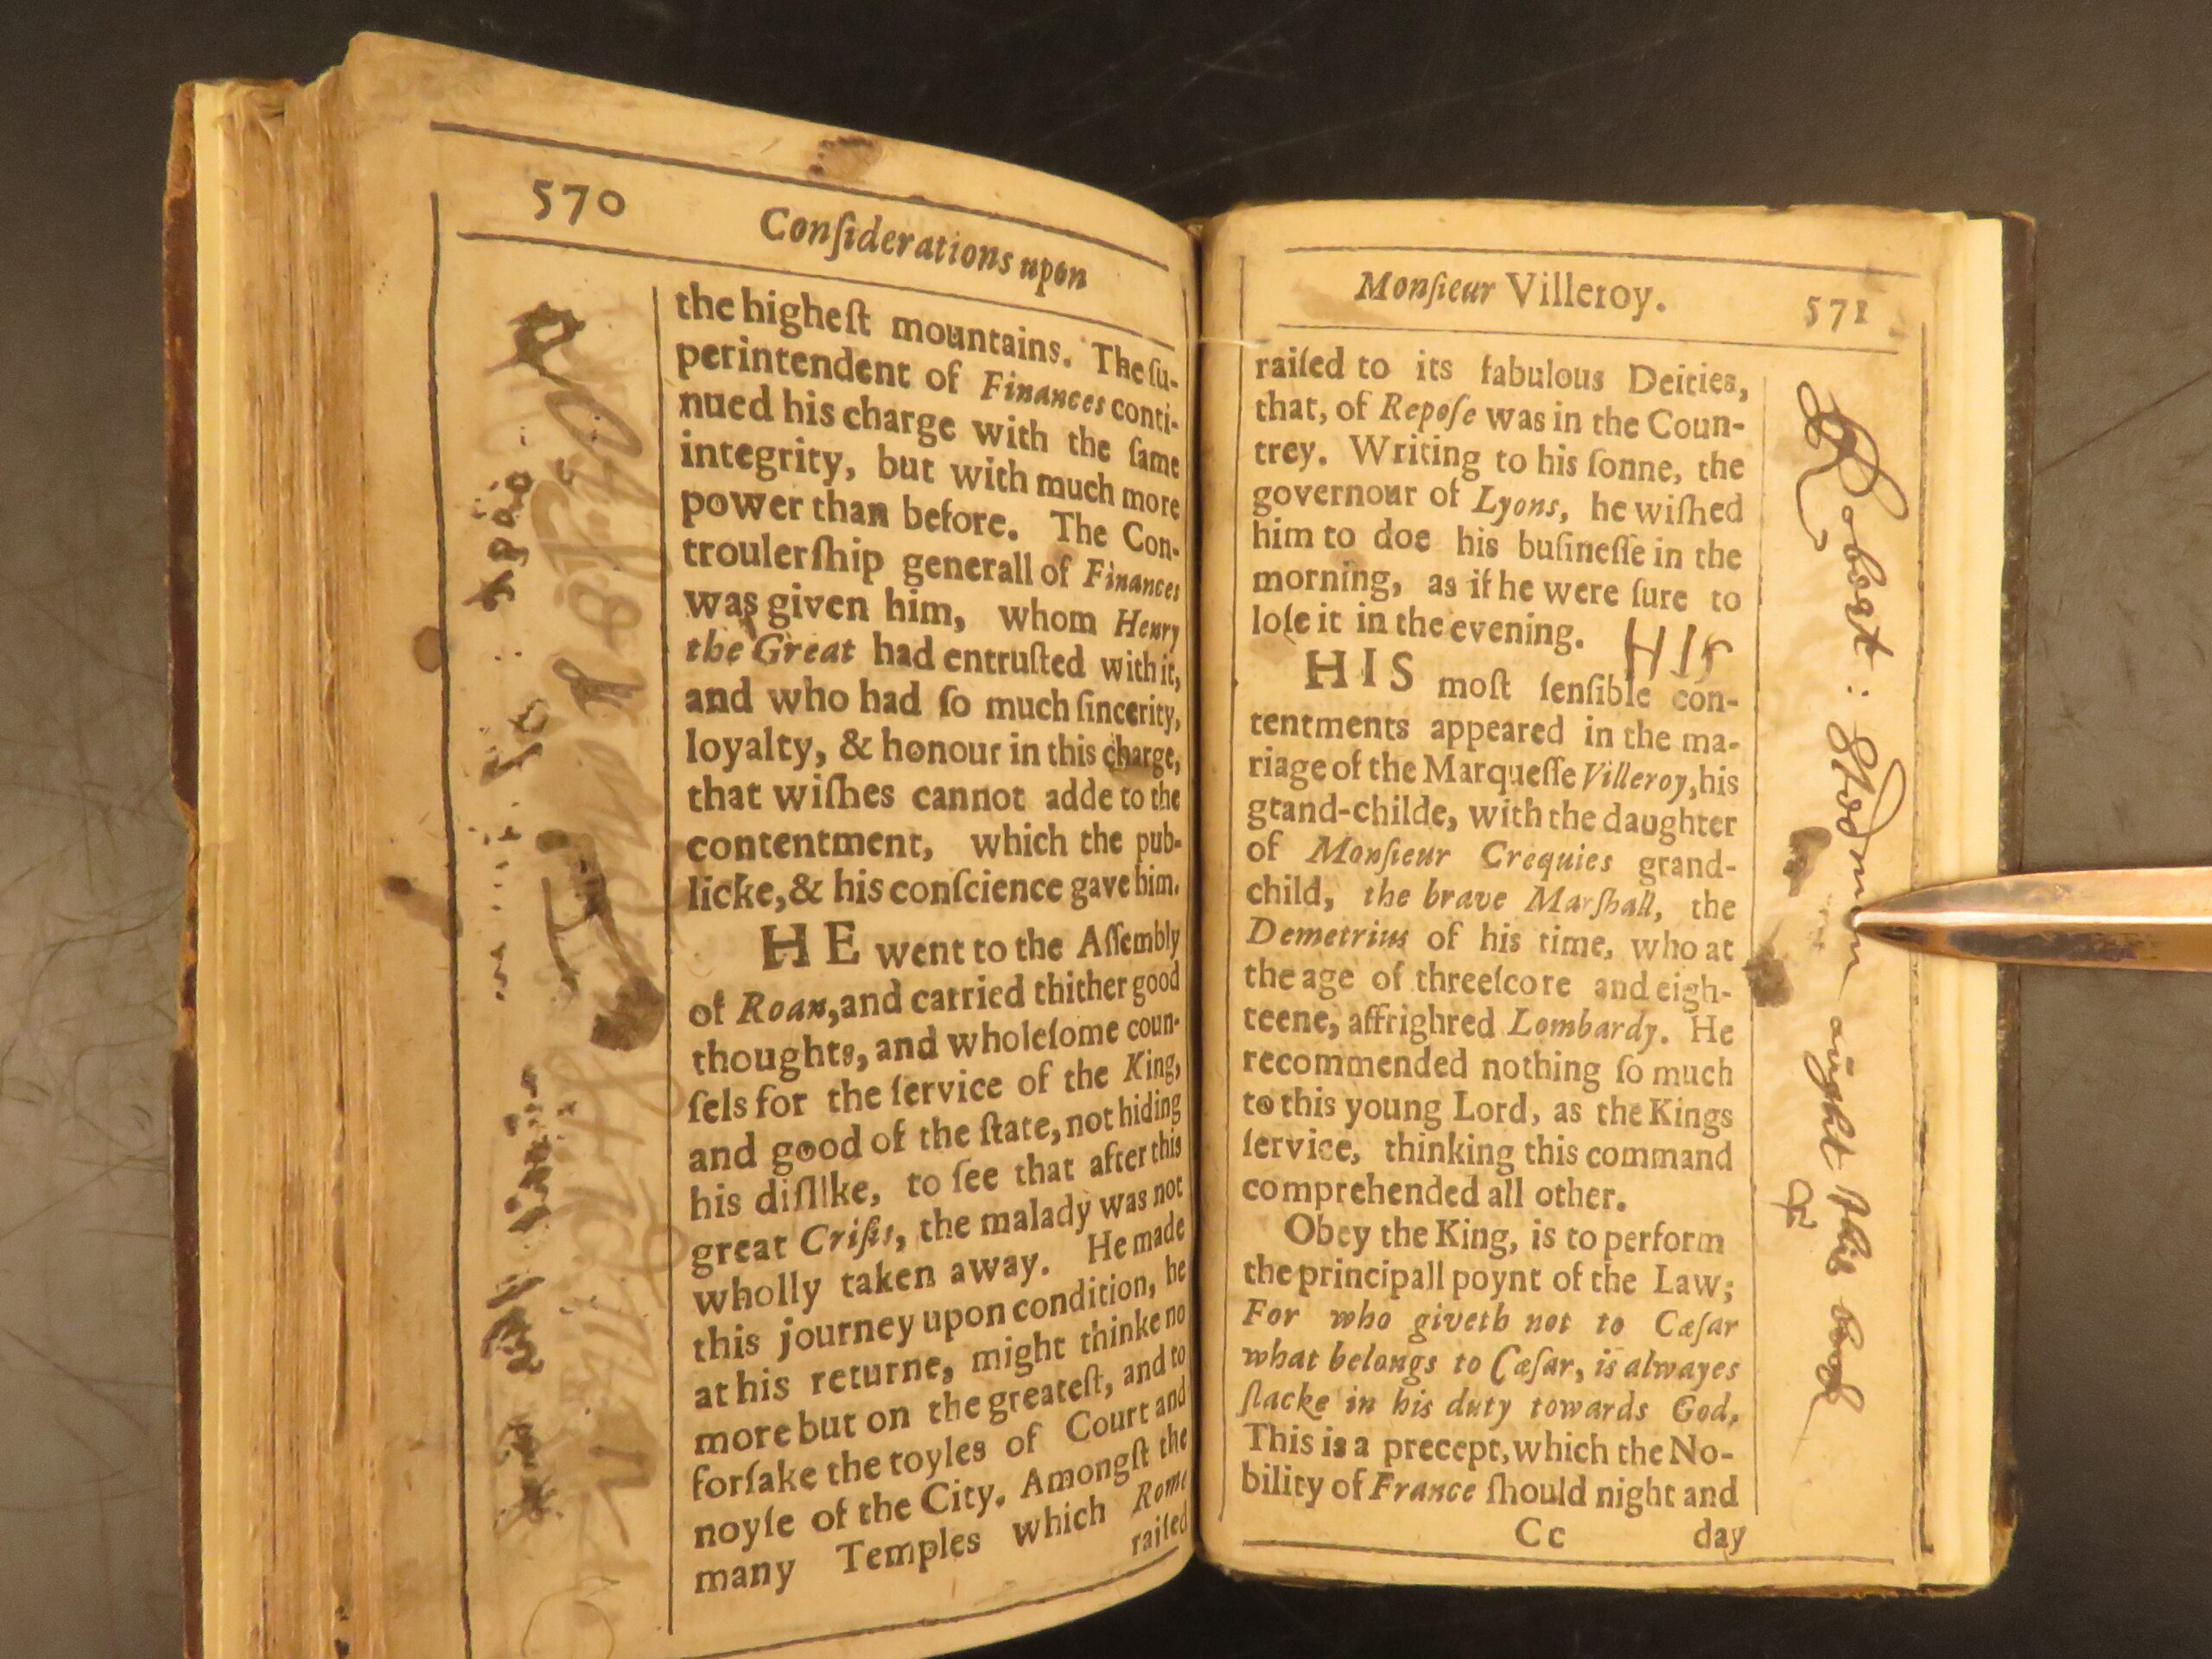 570
Conſiderations upon
the higheſt mountains. The ſu-
perintendent of Finances conti-
nued his charge with the ſame
integrity, but with much more
power than before. The Con-
troulerſhip generall of Finances
was given him, whom Henry
the Great had entruſted with it,
and who had ſo much ſincerity,
loyalty, & honour in this charge,
that wiſhes cannot adde to the
contentment, which the pub-
licke, & his conſcience gave him.
HE went to the Aſſembly
of Roan, and carried thither good
thoughts, and wholeſome coun-
ſels for the ſervice of the King,
and good of the ſtate, not hiding
his diſlike, to ſee that after this
great Criſis, the malady was not
wholly taken away. He made
this journey upon condition, he
at his returne, might thinke no
more but on the greateſt, and to
forſake the toyles of Court and
noyſe of the City. Amongſt the
many Temples which Rome
raiſed
Monſieur Villeroy.
571
raiſed to its fabulous Deities,
that, of Repoſe was in the Coun-
trey. Writing to his ſonne, the
governour of Lyons, he wiſhed
him to doe his buſineſſe in the
morning, as if he were ſure to
loſe it in the evening.
HIS
HIS moſt ſenſible con-
tentments appeared in the ma-
riage of the Marqueſſe Villeroy, his
grand-childe, with the daughter
of Monſieur Crequies grand-
child, the brave Marſhall, the
Demetrius of his time, who at
the age of threeſcore and eigh-
teene, affrighred Lombardy. He
recommended nothing ſo much
to this young Lord, as the Kings
ſervice, thinking this command
comprehended all other.
Obey the King, is to perform
the principall poynt of the Law;
For who giveth not to Cæſar
what belongs to Cæſar, is alwayes
ſlacke in his duty towards God,
This is a precept, which the No-
bility of France ſhould night and
Cc
day
Robert : aught this book